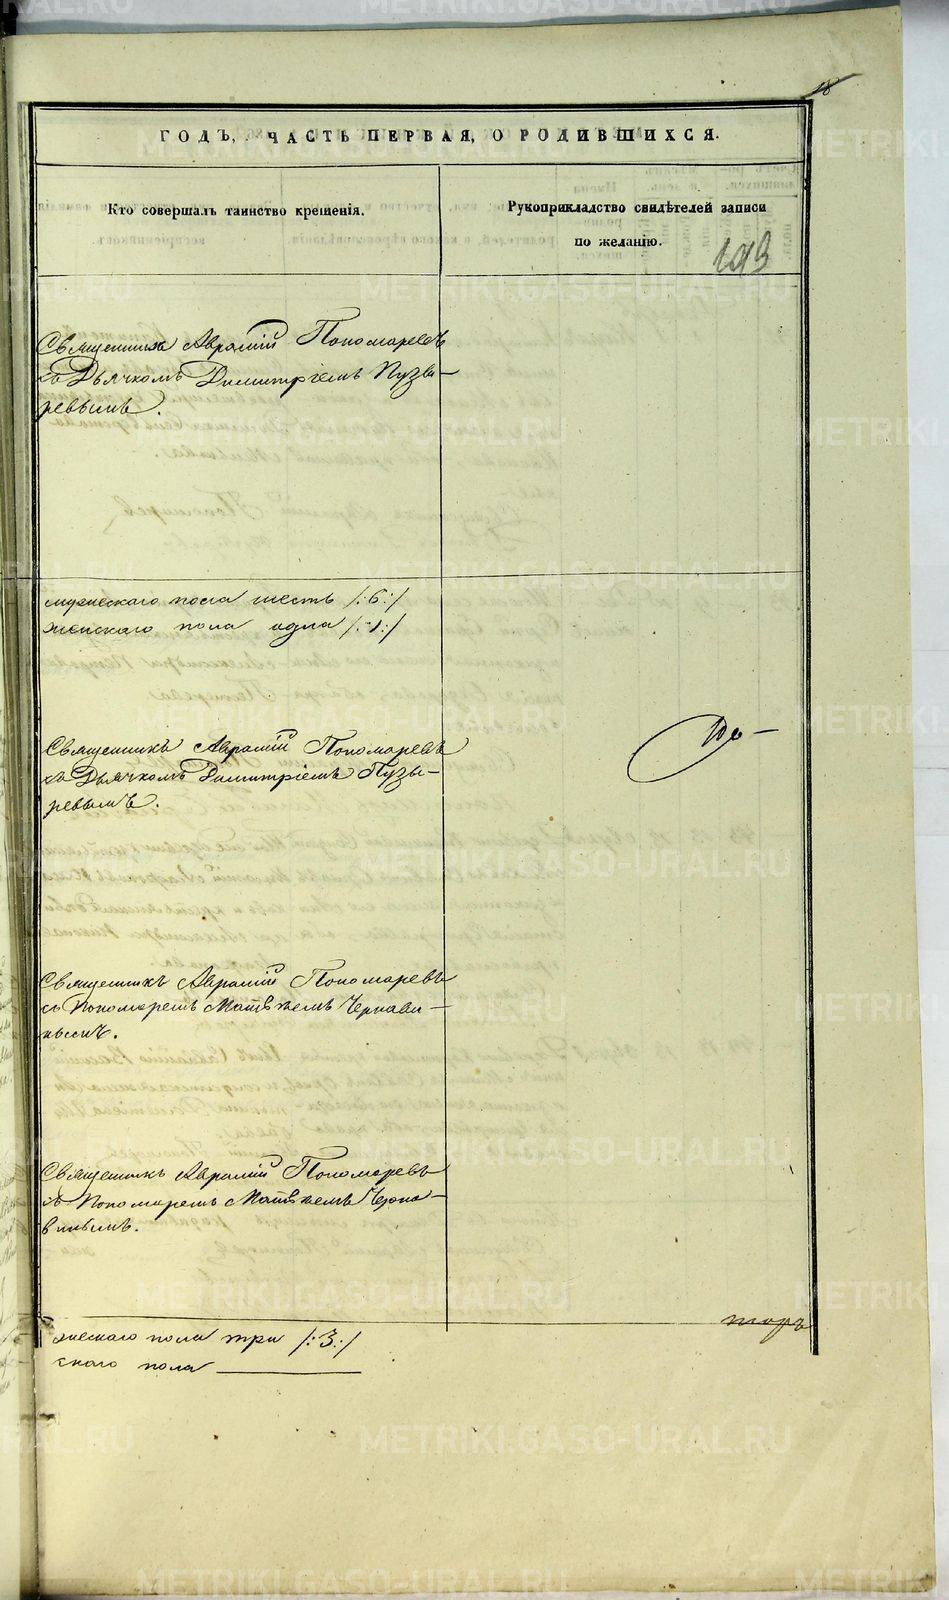 18
ГОДЪ, ЧАСТЬ ПЕРВАЯ, О РОДИВШИХСЯ.
Кто совершалъ таинство крещенія.
Рукоприкладство свидѣтелей записи
по желанію.
193
Священникъ Аврамій Пономаревъ
съ Дьячкомъ Димитріемъ Пузы–
ревымъ.
мужескаго пола шесть /:6:/
женскаго пола одна /:1:/
Священникъ Аврамій Пономаревъ
съ Дьячкомъ Димитріемъ Пузы–
ревымъ.
Священникъ Аврамій Пономаревъ
съ Пономаремъ Матвѣемъ Чернави–
нымъ.
Священникъ Аврамій Пономаревъ
съ Пономаремъ Матвѣемъ Черна–
винымъ.
жескаго пола три /:3:/
скаго пола
торъ
METRIKI.GASO-URAL.RU